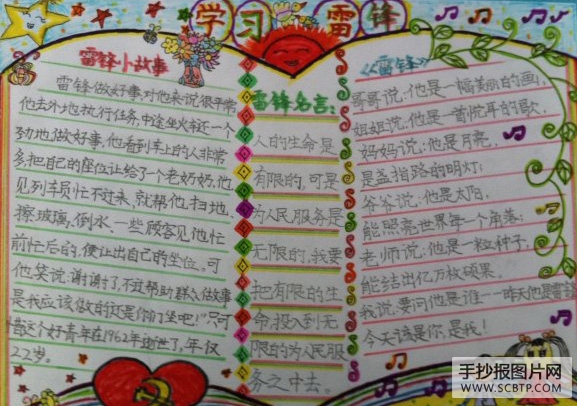 学习雷锋
雷锋小故事
雷锋做好事对他来说很平常
他去外地执行任务,中途坐火车还一个
劲地做好事,他看到车上的人非常
多,把自己的座位让给了一个老奶奶,他
见列车员忙不过来,就帮他扫地,
擦玻璃,倒水,一些顾客见他忙
前忙后的,便让出自己的坐位。可
他笑说:谢谢了,不过帮助群众做事
是我应该做的还是你们坐吧!"只可
惜这个好青年在1962年逝世了,年仅
22岁。
雷锋名言:
人的生命是
有限的,可是
为人民服务是
无限的,我要
把有限的生
命,投入到无
限的为人民服
务之中去。
《雷锋》
哥哥说,他是一幅美丽的画,
姐姐说,他是一首悦耳的歌,
妈妈说:他是月亮,
是盏指路的明灯;
爷爷说:他是太阳,
能照亮世界每一个角落;
老师说:他是一粒种子,
能结出亿万枚硕果。
我说,要问他是谁——昨天他是雷锋
今天该是你,是我!
手抄报图片网
WWW.SCBTP.COM